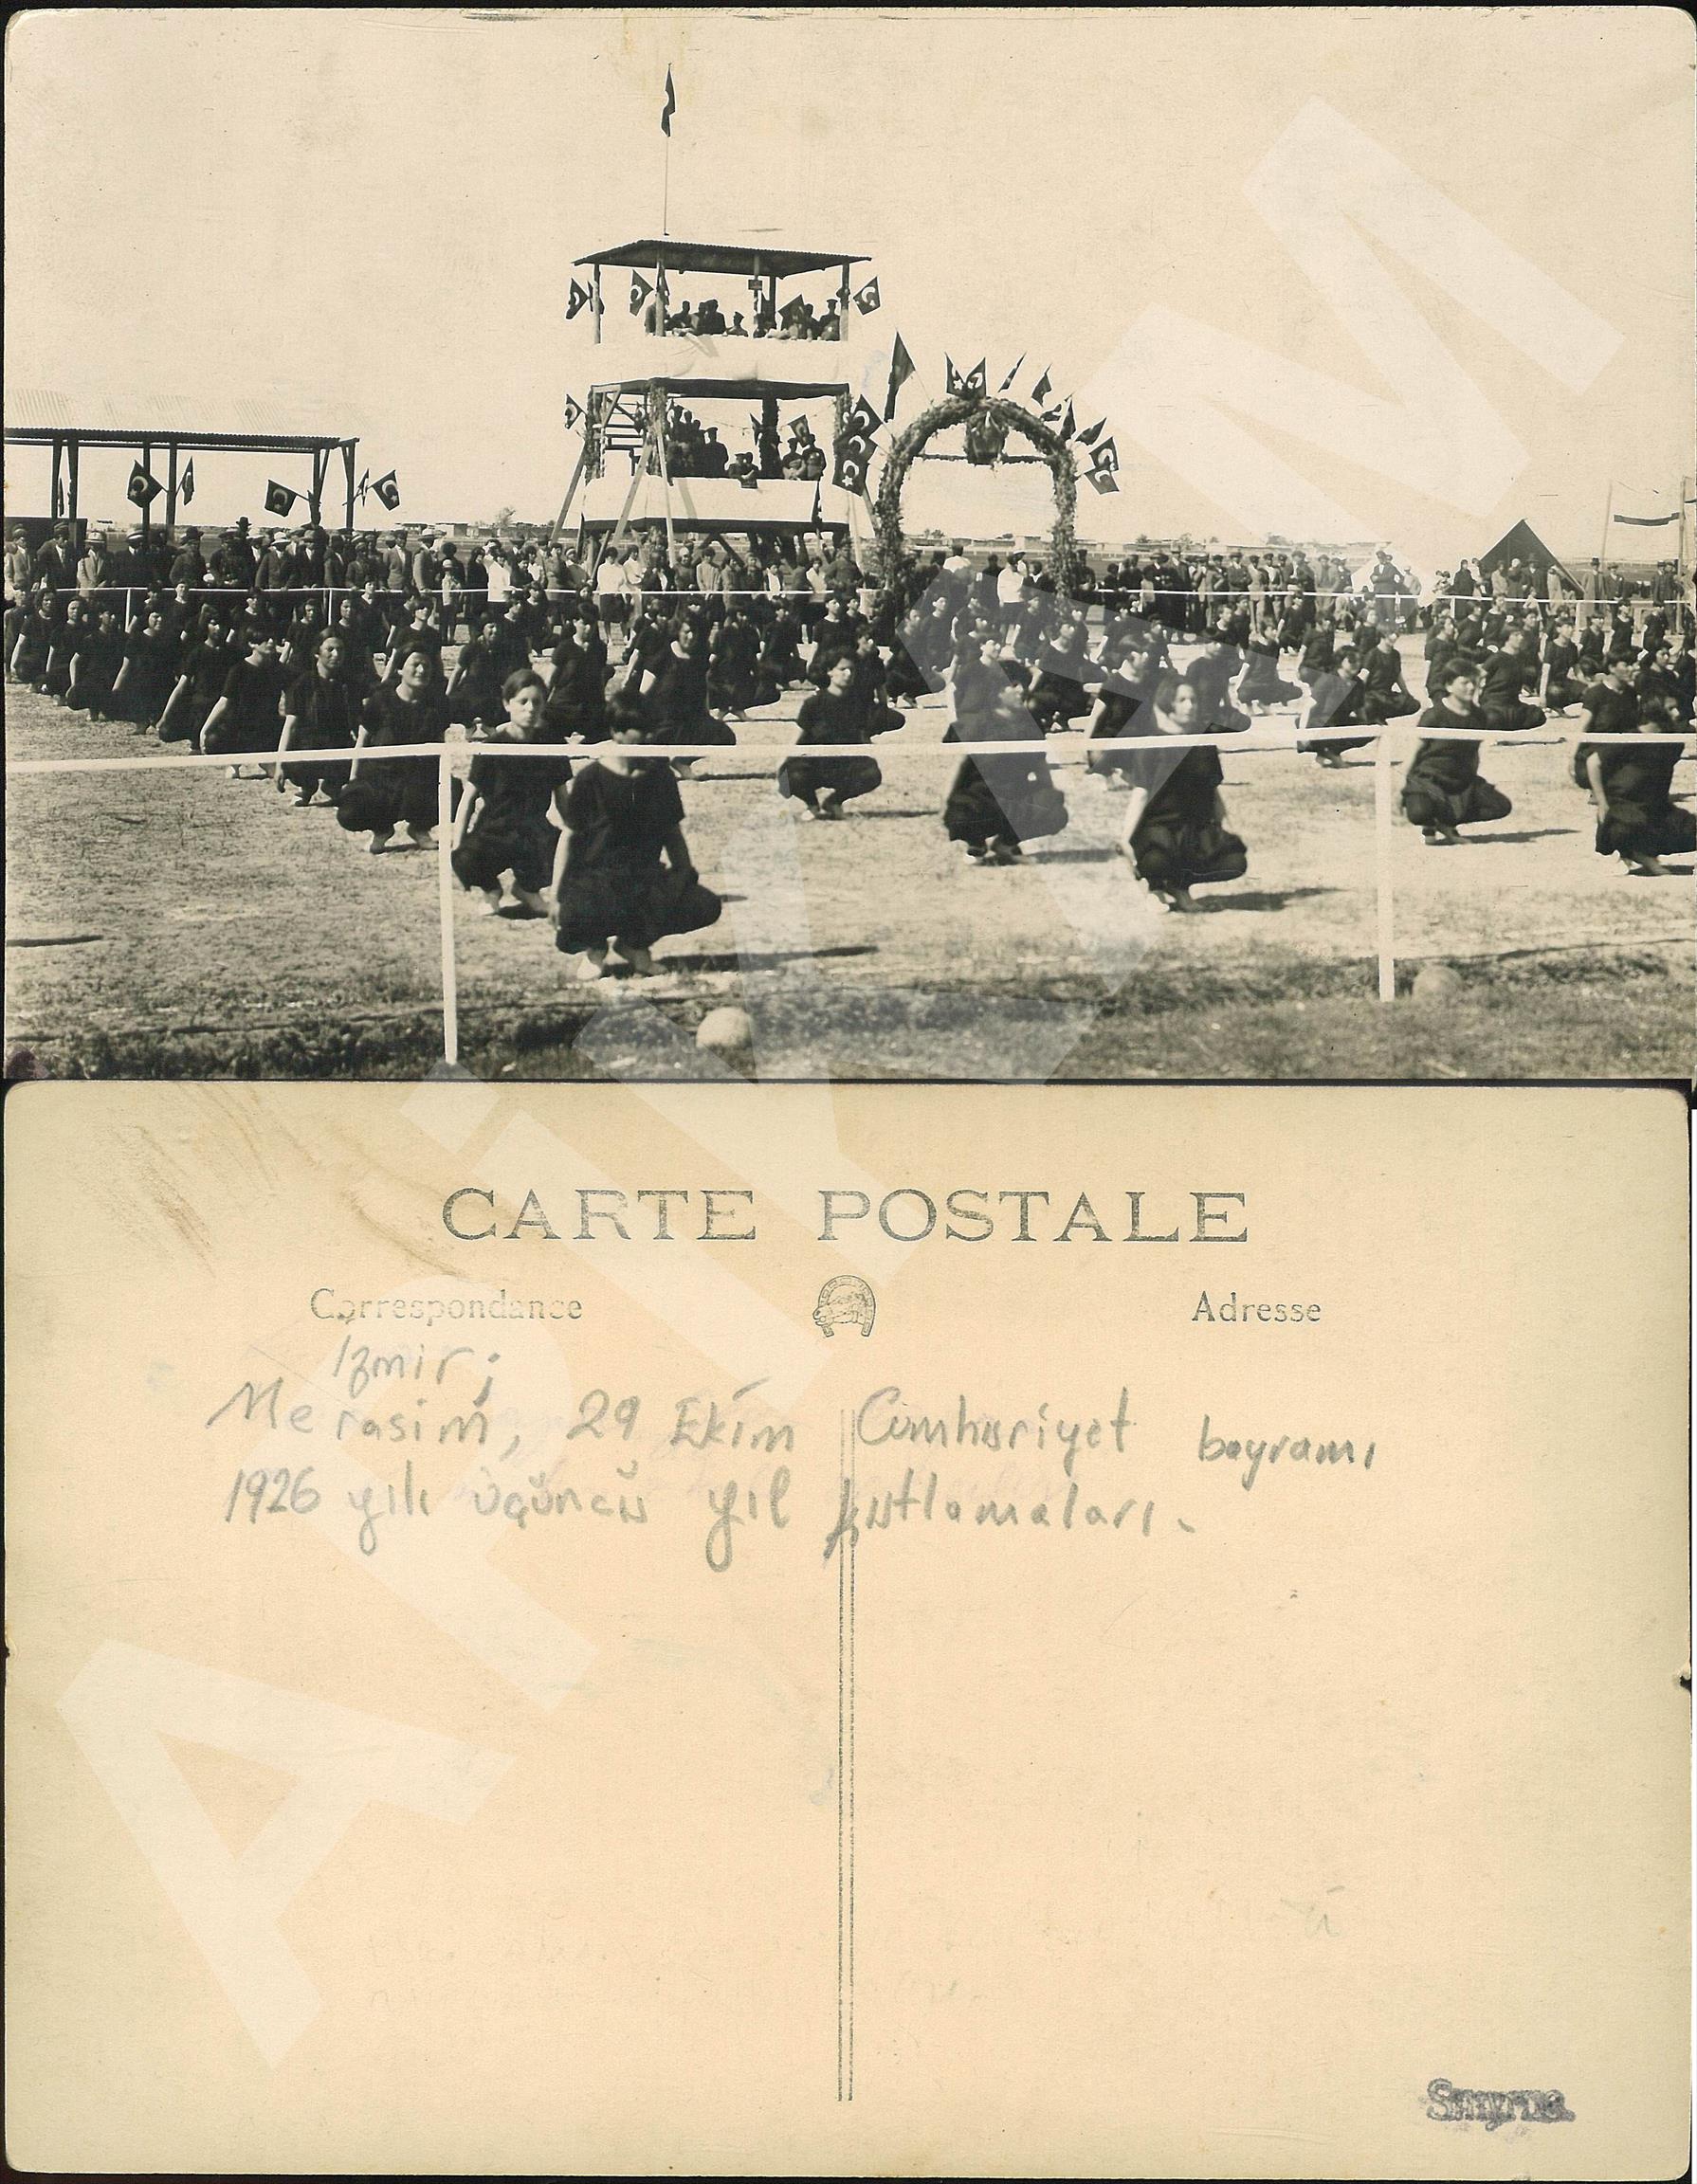 CARTE POSTALE
Correspondance
Adresse
İzmir;
Merasim, 29 Ekim Cumhuriyet bayramı
1926 yılı üçüncü yıl kutlamaları.
Smyrne
ARTİKAM